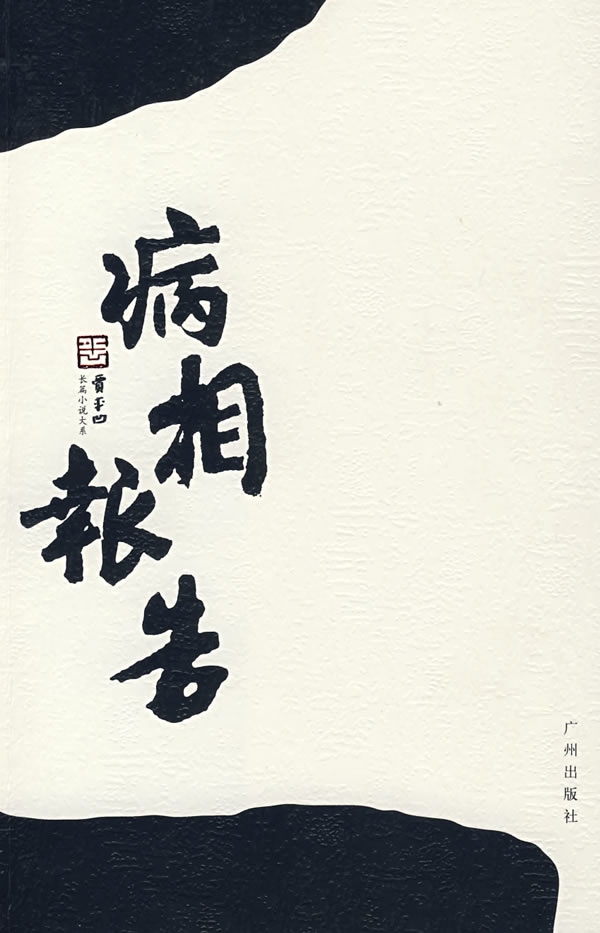 病相報告
賈平凹
长篇小说大系
广州出版社